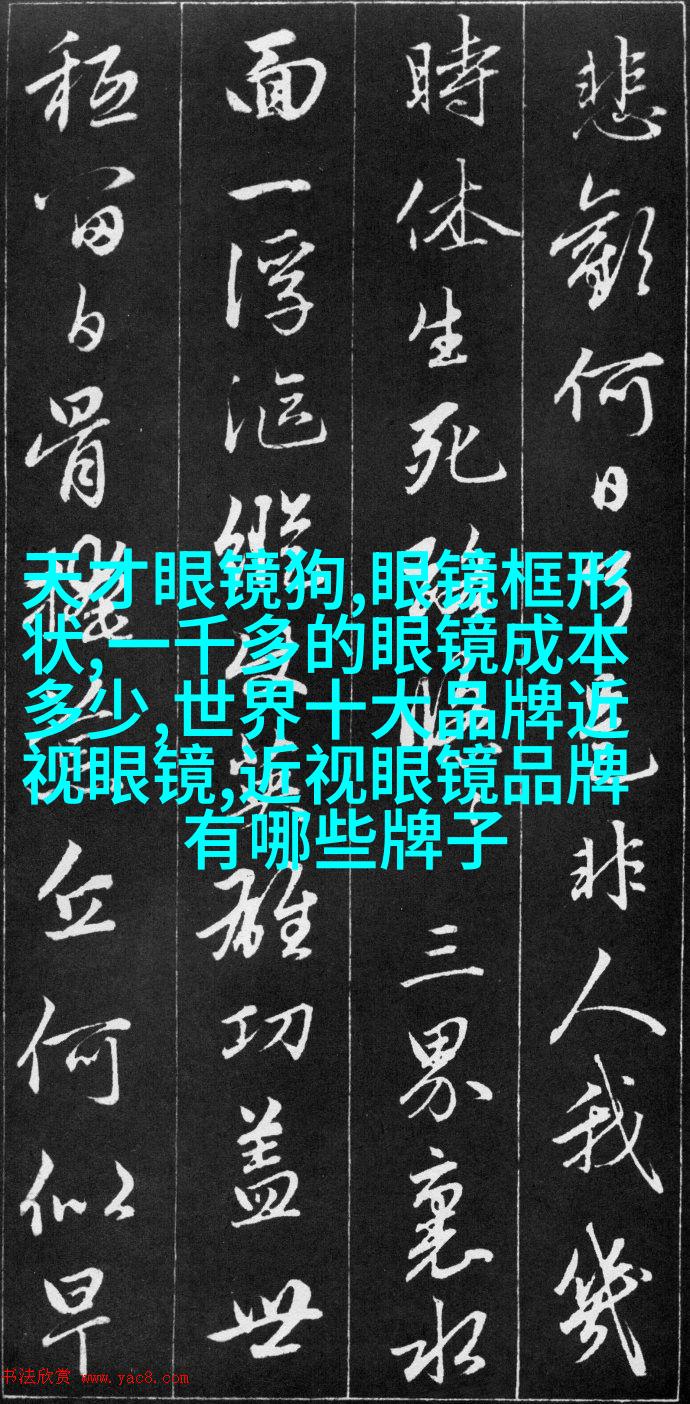 悲歡何日是非人我幾
時休生死路三界裏水
面一浮漚縱英雄功盖世
秖留白骨丘何似早
天才眼镜狗,眼镜框形
状,一千多的眼镜成本
多少,世界十大品牌近
视眼镜,近视眼镜品牌
有哪些牌子
书法欣赏 www.yac8.com